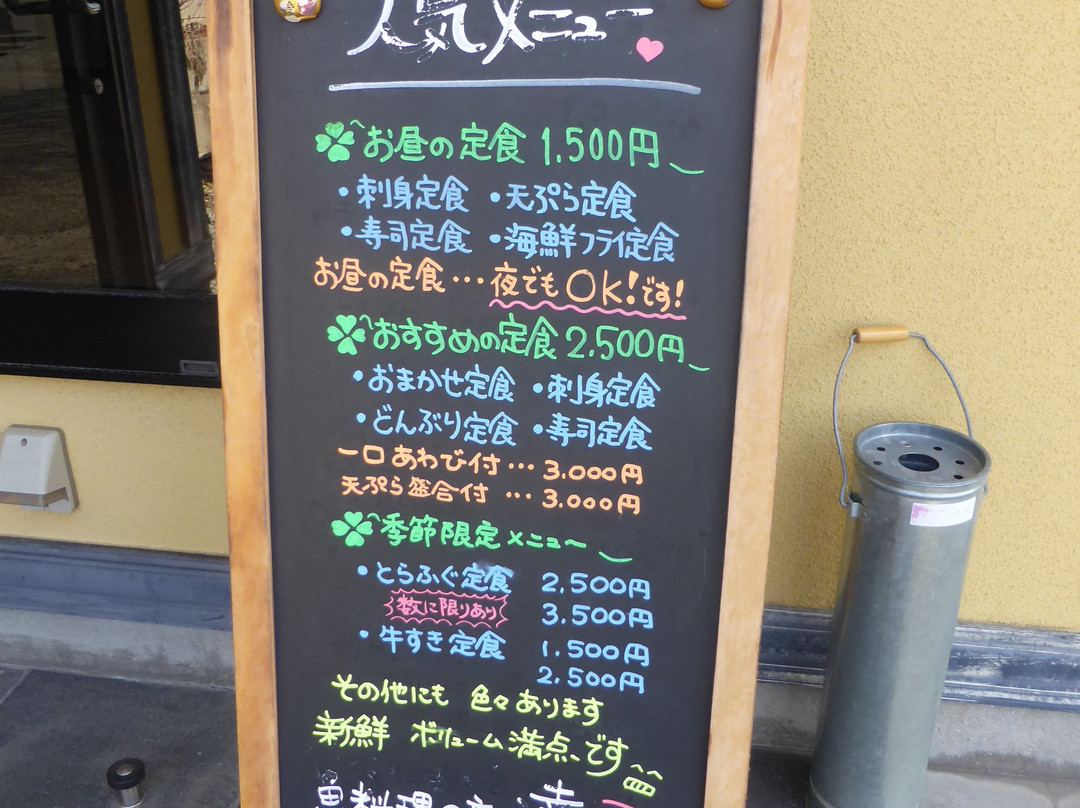 人気メニュー
お昼の定食 1.500円
・刺身定食 ・天ぷら定食
・寿司定食 ・海鮮フライ定食
お昼の定食…夜でもOK!です!
おすすめの定食 2.500円
・おまかせ定食 ・刺身定食
・どんぶり定食 ・寿司定食
一口あわび付…3.000円
天ぷら盛合付…3.000円
季節限定メニュ〜
・とらふぐ定食 2.500円
数に限りあり 3.500円
・牛すき定食 1.500円
2.500円
その他にも 色々あります
新鮮 ボリューム満点、です
料理の